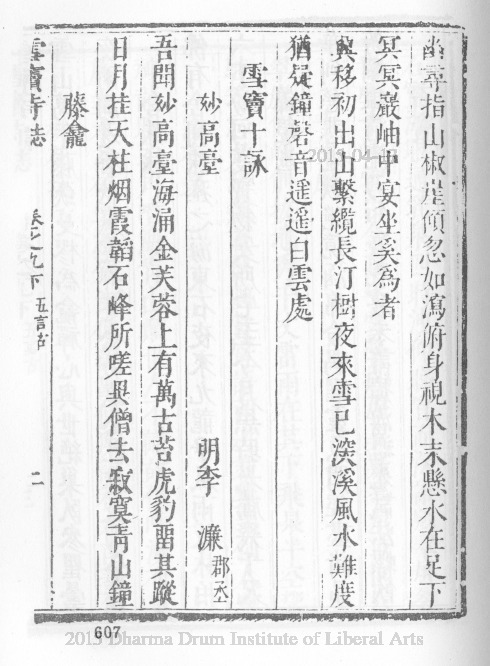 幽尋指山椒崖傾忽如瀉俯身視木末懸水在足下
冥冥巖岫中宴坐奚為者
興移初出山繫纜長汀樹夜來雪已深溪風水難度
猶疑鐘磬音遥遥白雲處
雪竇十詠
妙高臺 明李濂郡丞
吾聞妙高臺海涌金芙蓉上有萬古苔虎豹畱其蹤
日月挂天柱烟霞韜石峰所嗟異僧去寂寞青山鐘
藤龕
雪竇寺誌 卷之九下 五言古 二
607
2013-04-
2013 Dharma Drum Institute of Liberal Arts